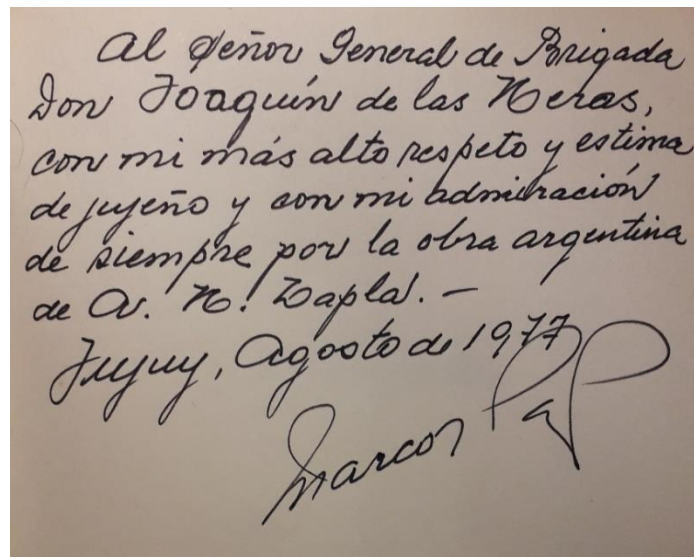 Al Señor General de Brigada
Don Joaquín de las Heras,
con mi más alto respeto y estima
de jujeño y con mi admiración
de siempre por la obra argentina
de A. H. Zapla. –
Jujuy, Agosto de 1977
Marcos Paz